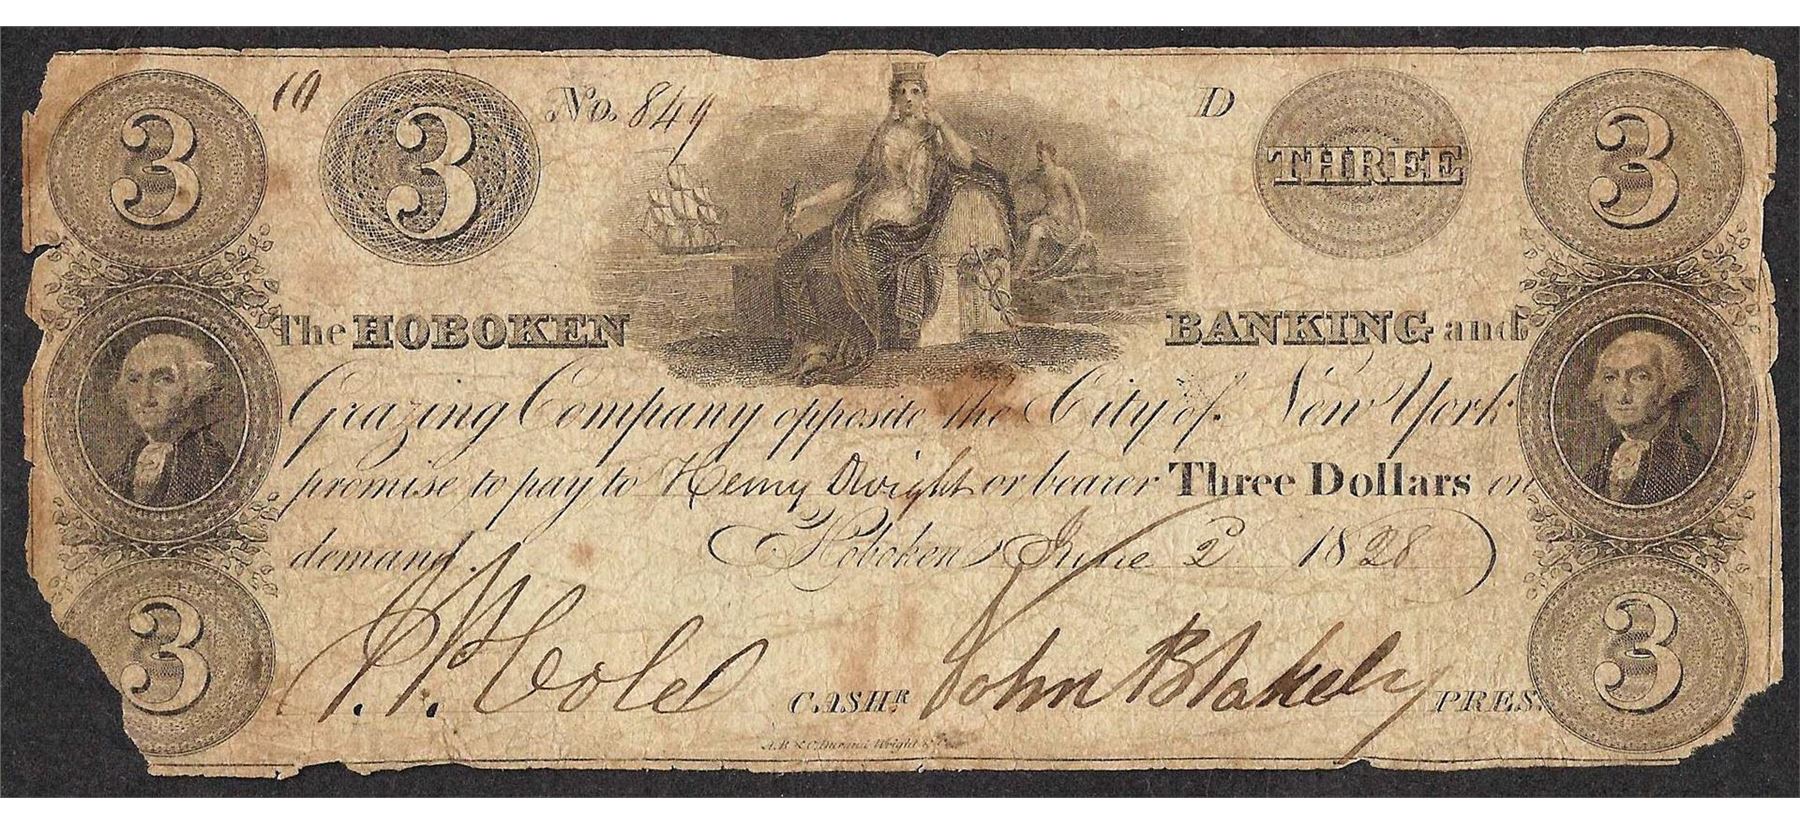 3 10 3 No. 849 D THREE 3
The HOBOKEN BANKING and
Grazing Company opposite the City of New York
promise to pay to Henry Dwight or bearer Three Dollars on
demand. Hoboken June 2 1828
3 Cole CASHR. John Blakely PRES. 3
A.B. & C. Durand, Wright & Co.